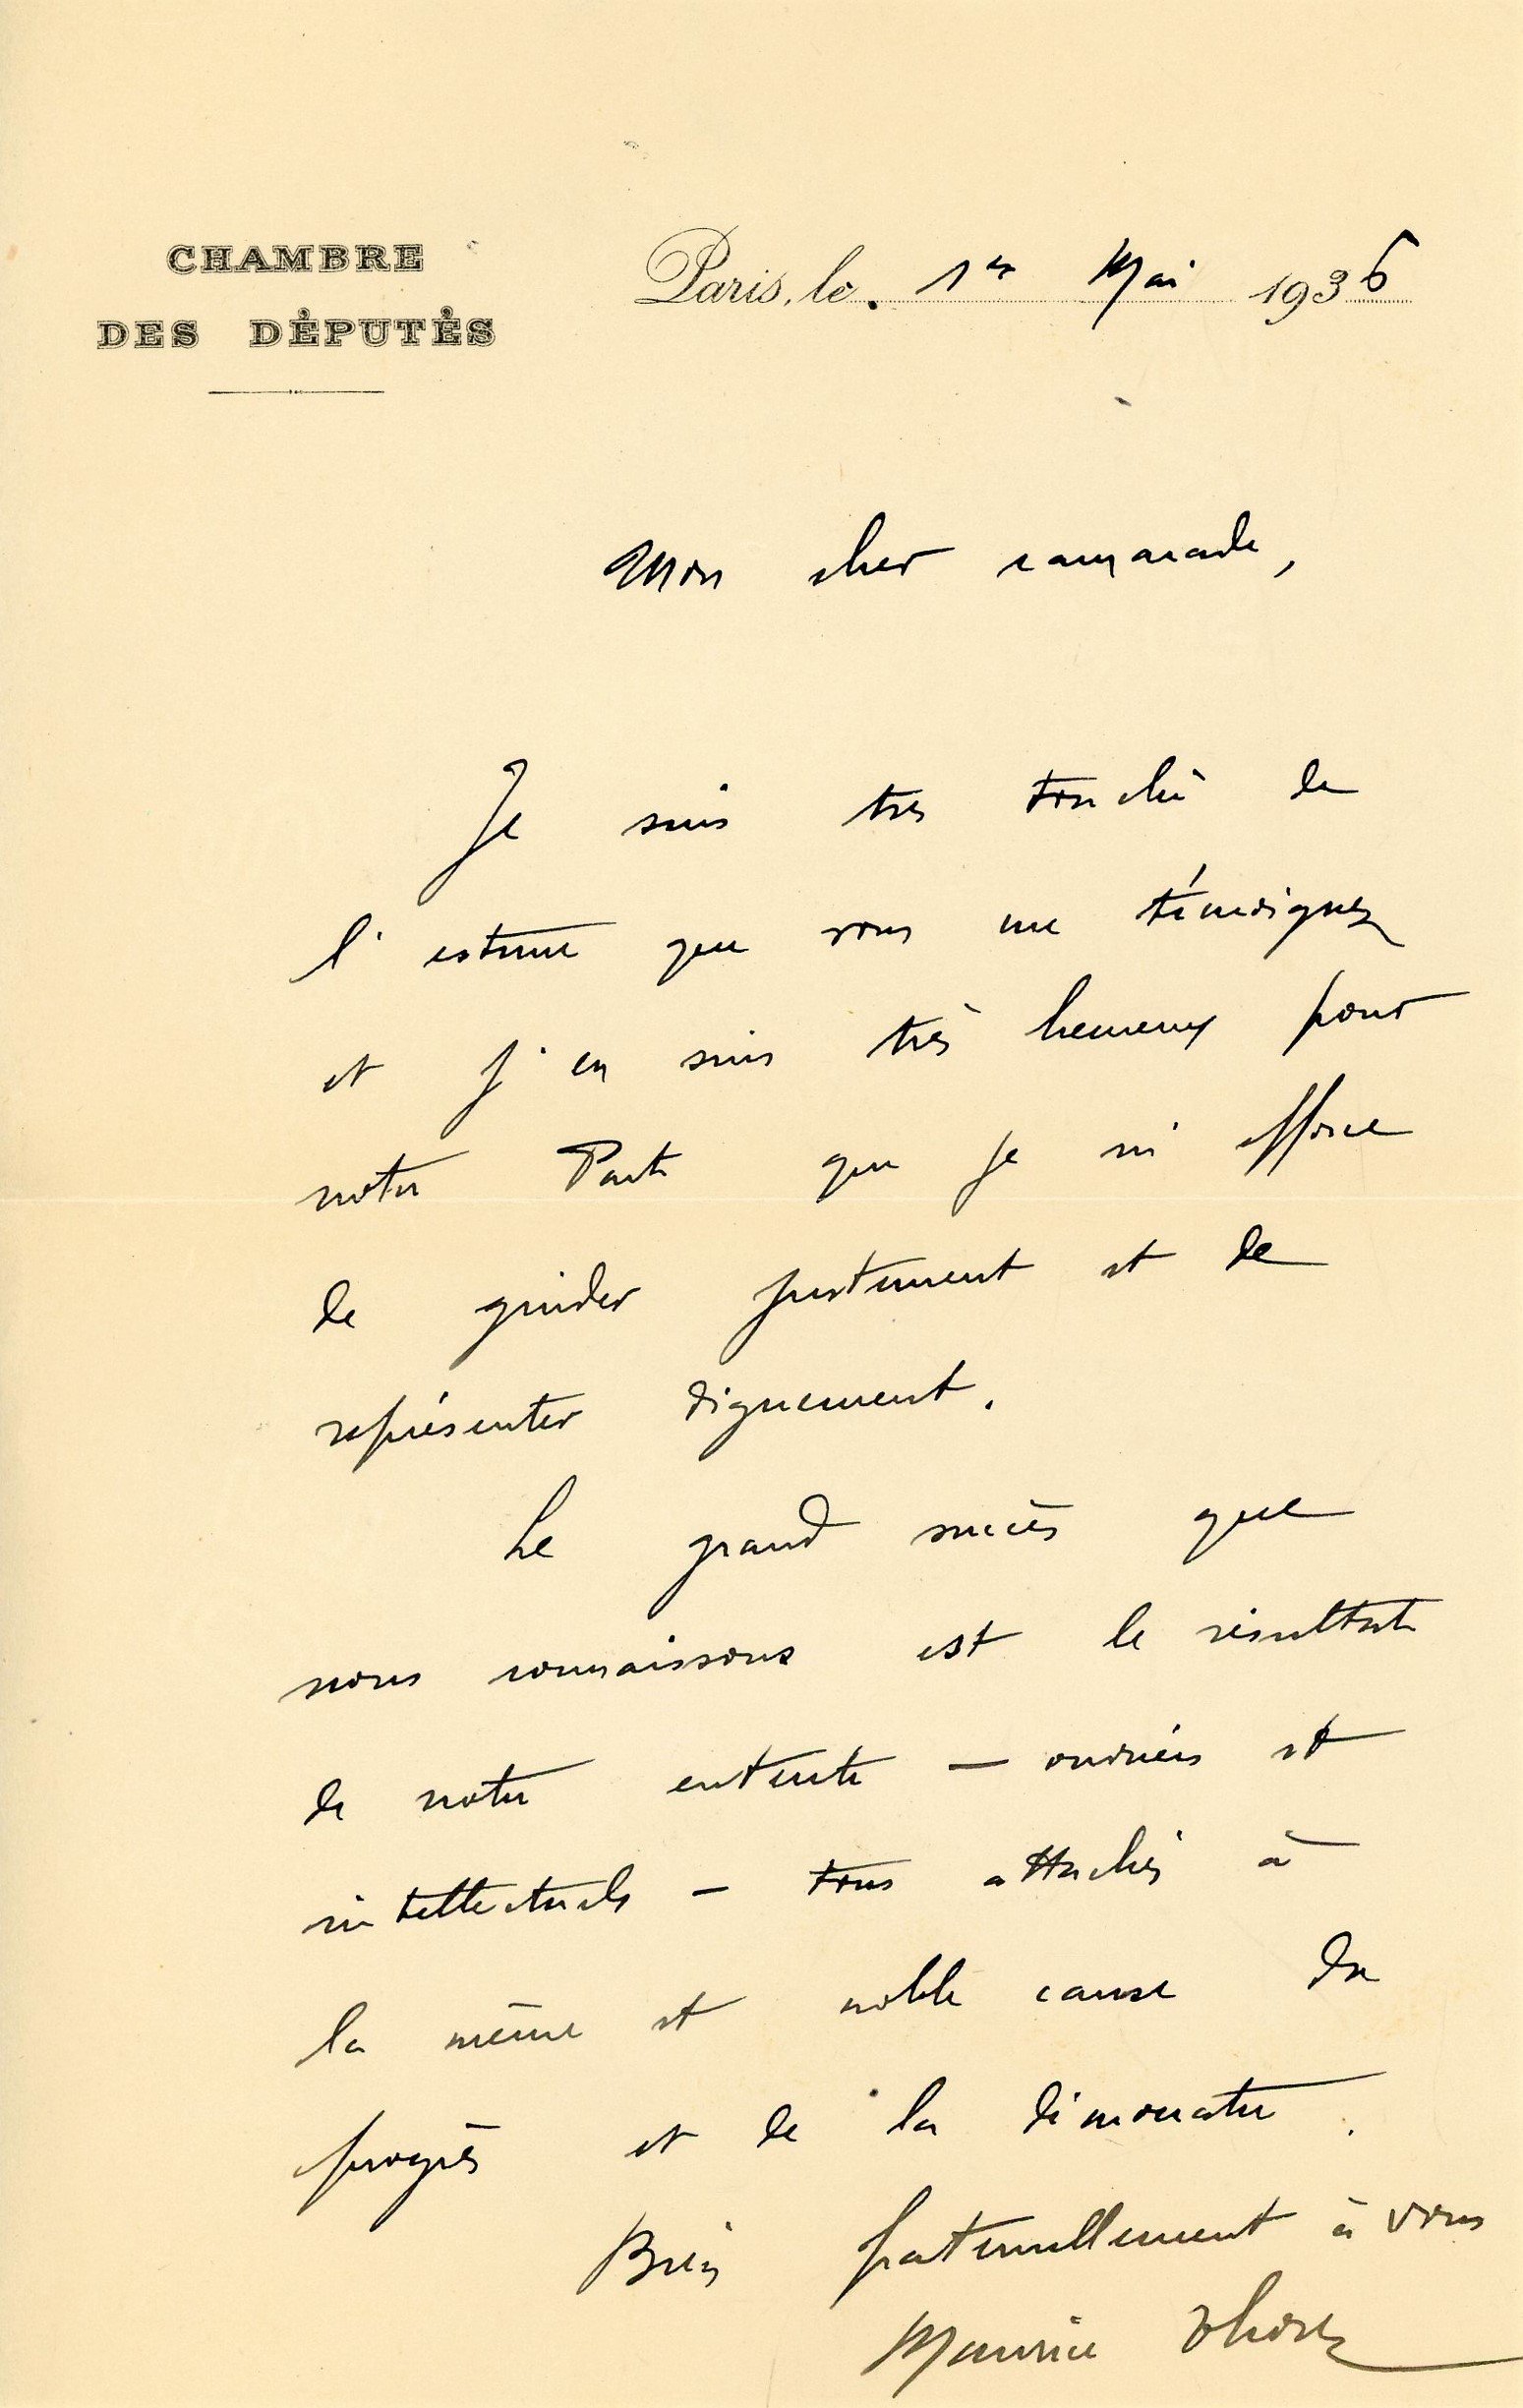 CHAMBRE
DES DÉPUTÉS
Paris, le 1er Mai 1936
Mon cher camarade,
Je suis très touché de
l'estime que vous me témoignez
et j'en suis très heureux pour
notre Parti que je m'efforce
de guider justement et de
représenter dignement.
Le grand succès que
nous connaissons est le résultat
de notre entente — ouvriers et
intellectuels — tous attachés à
la même et noble cause du
progrès et de la démocratie.
Bien fraternellement à vous
Maurice Thorez